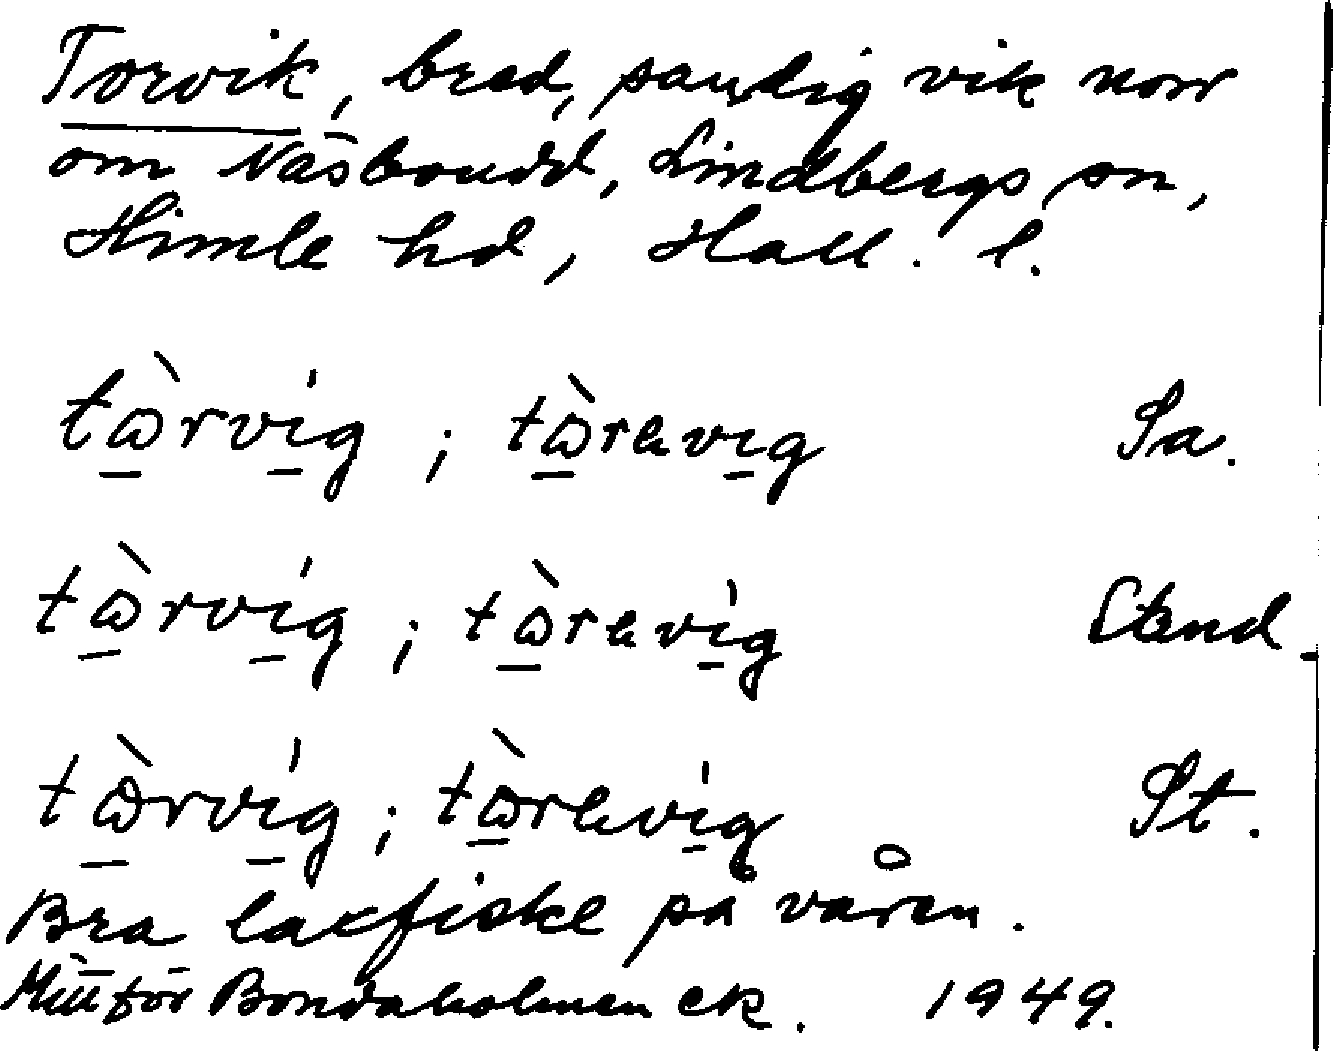 Torvik, bred, sandig vik norr
om Näsboudd, Lindbergs sn,
Himle hd, Hall. l.
tɷ̀rvig ; tɷ̀revig Sa.
tɷ̀rvig ; tɷ̀revig Stend.
tɷ̀rvig ; tɷ̀revig St.
Bra laxfiske på våren.
Mitt för Bondaholmen ek. 1949.